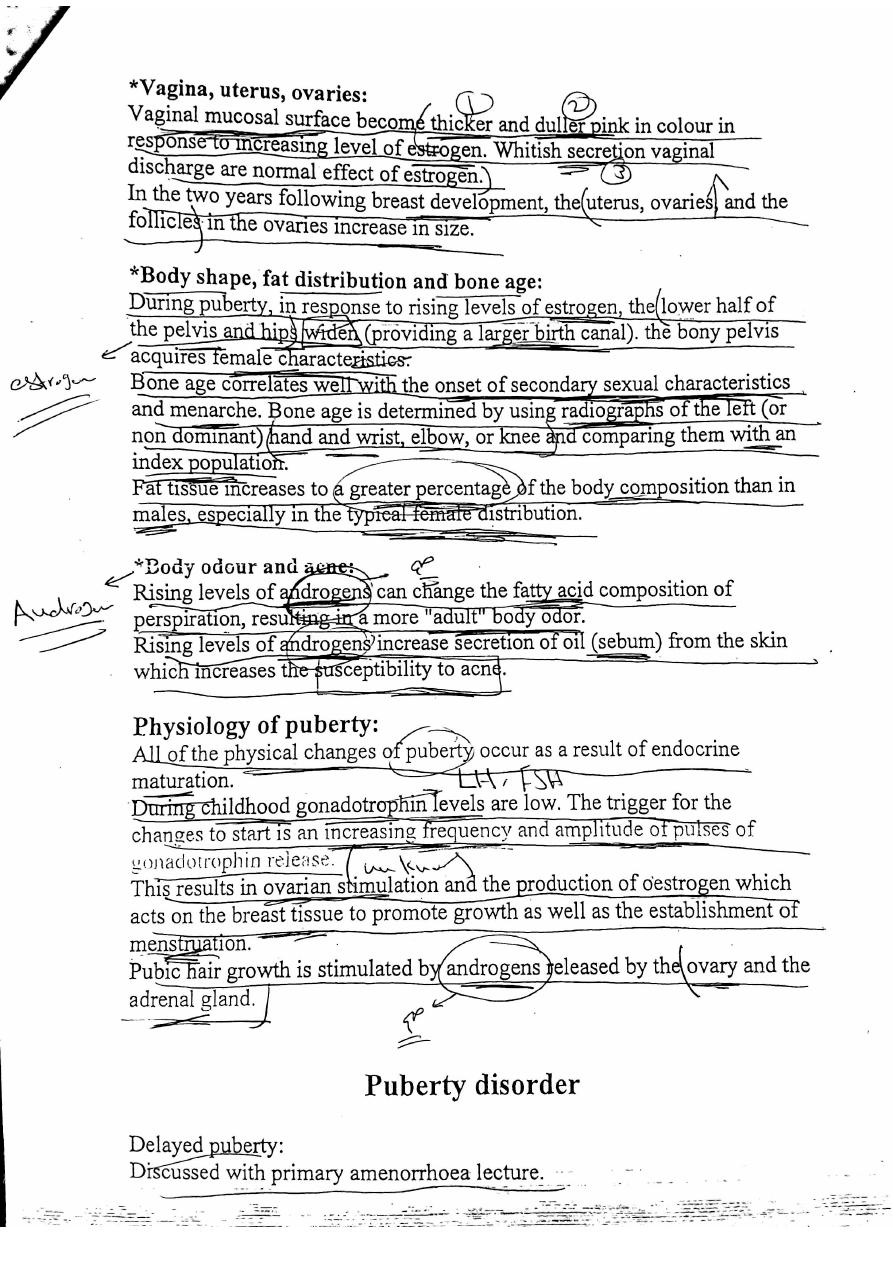 *Vagina, uterus, ovaries:
1 2
Vaginal mucosal surface become thicker and duller pink in colour in
response to increasing level of estrogen. Whitish secretion vaginal
3
discharge are normal effect of estrogen.
In the two years following breast development, the uterus, ovaries and the
follicles in the ovaries increase in size.
*Body shape, fat distribution and bone age:
During puberty, in response to rising levels of estrogen, the lower half of
the pelvis and hips widen (providing a larger birth canal). the bony pelvis
acquires female characteristics.
estrogen
Bone age correlates well with the onset of secondary sexual characteristics
and menarche. Bone age is determined by using radiographs of the left (or
non dominant) hand and wrist, elbow, or knee and comparing them with an
index population.
Fat tissue increases to a greater percentage of the body composition than in
males, especially in the typical female distribution.
*Body odour and acne:
Rising levels of androgens can change the fatty acid composition of
Androgen
perspiration, resulting in a more "adult" body odor.
Rising levels of androgens increase secretion of oil (sebum) from the skin
which increases the susceptibility to acne.
Physiology of puberty:
All of the physical changes of puberty occur as a result of endocrine
maturation.
LH, FSH
During childhood gonadotrophin levels are low. The trigger for the
changes to start is an increasing frequency and amplitude of pulses of
gonadotrophin release.
This results in ovarian stimulation and the production of oestrogen which
acts on the breast tissue to promote growth as well as the establishment of
menstruation.
Pubic hair growth is stimulated by androgens released by the ovary and the
adrenal gland.
Puberty disorder
Delayed puberty:
Discussed with primary amenorrhoea lecture.